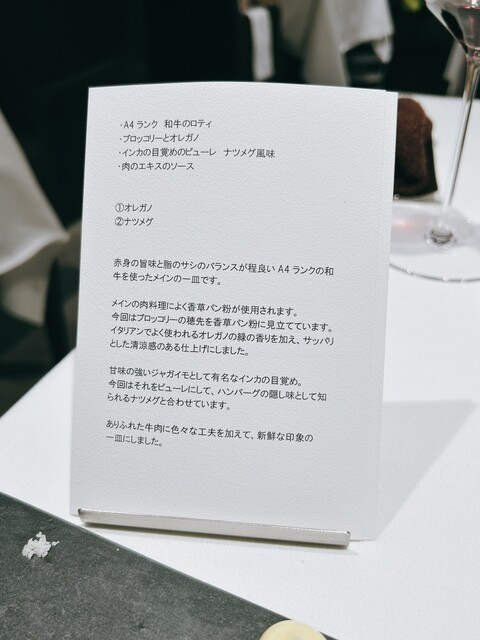 ・A4ランク 和牛のロティ
・ブロッコリーとオレガノ
・インカの目覚めのピューレ ナツメグ風味
・肉のエキスのソース
①オレガノ
②ナツメグ
赤身の旨味と脂のサシのバランスが程良いA4ランクの和
牛を使ったメインの一皿です。
メインの肉料理によく香草パン粉が使用されます。
今回はブロッコリーの穂先を香草パン粉に見立てています。
イタリアンでよく使われるオレガノの緑の香りを加え、サッパリ
とした清涼感のある仕上げにしました。
甘味の強いジャガイモとして有名なインカの目覚め。
今回はそれをピューレにして、ハンバーグの隠し味として知
られるナツメグと合わせています。
ありふれた牛肉に色々な工夫を加えて、新鮮な印象の
一皿にしました。